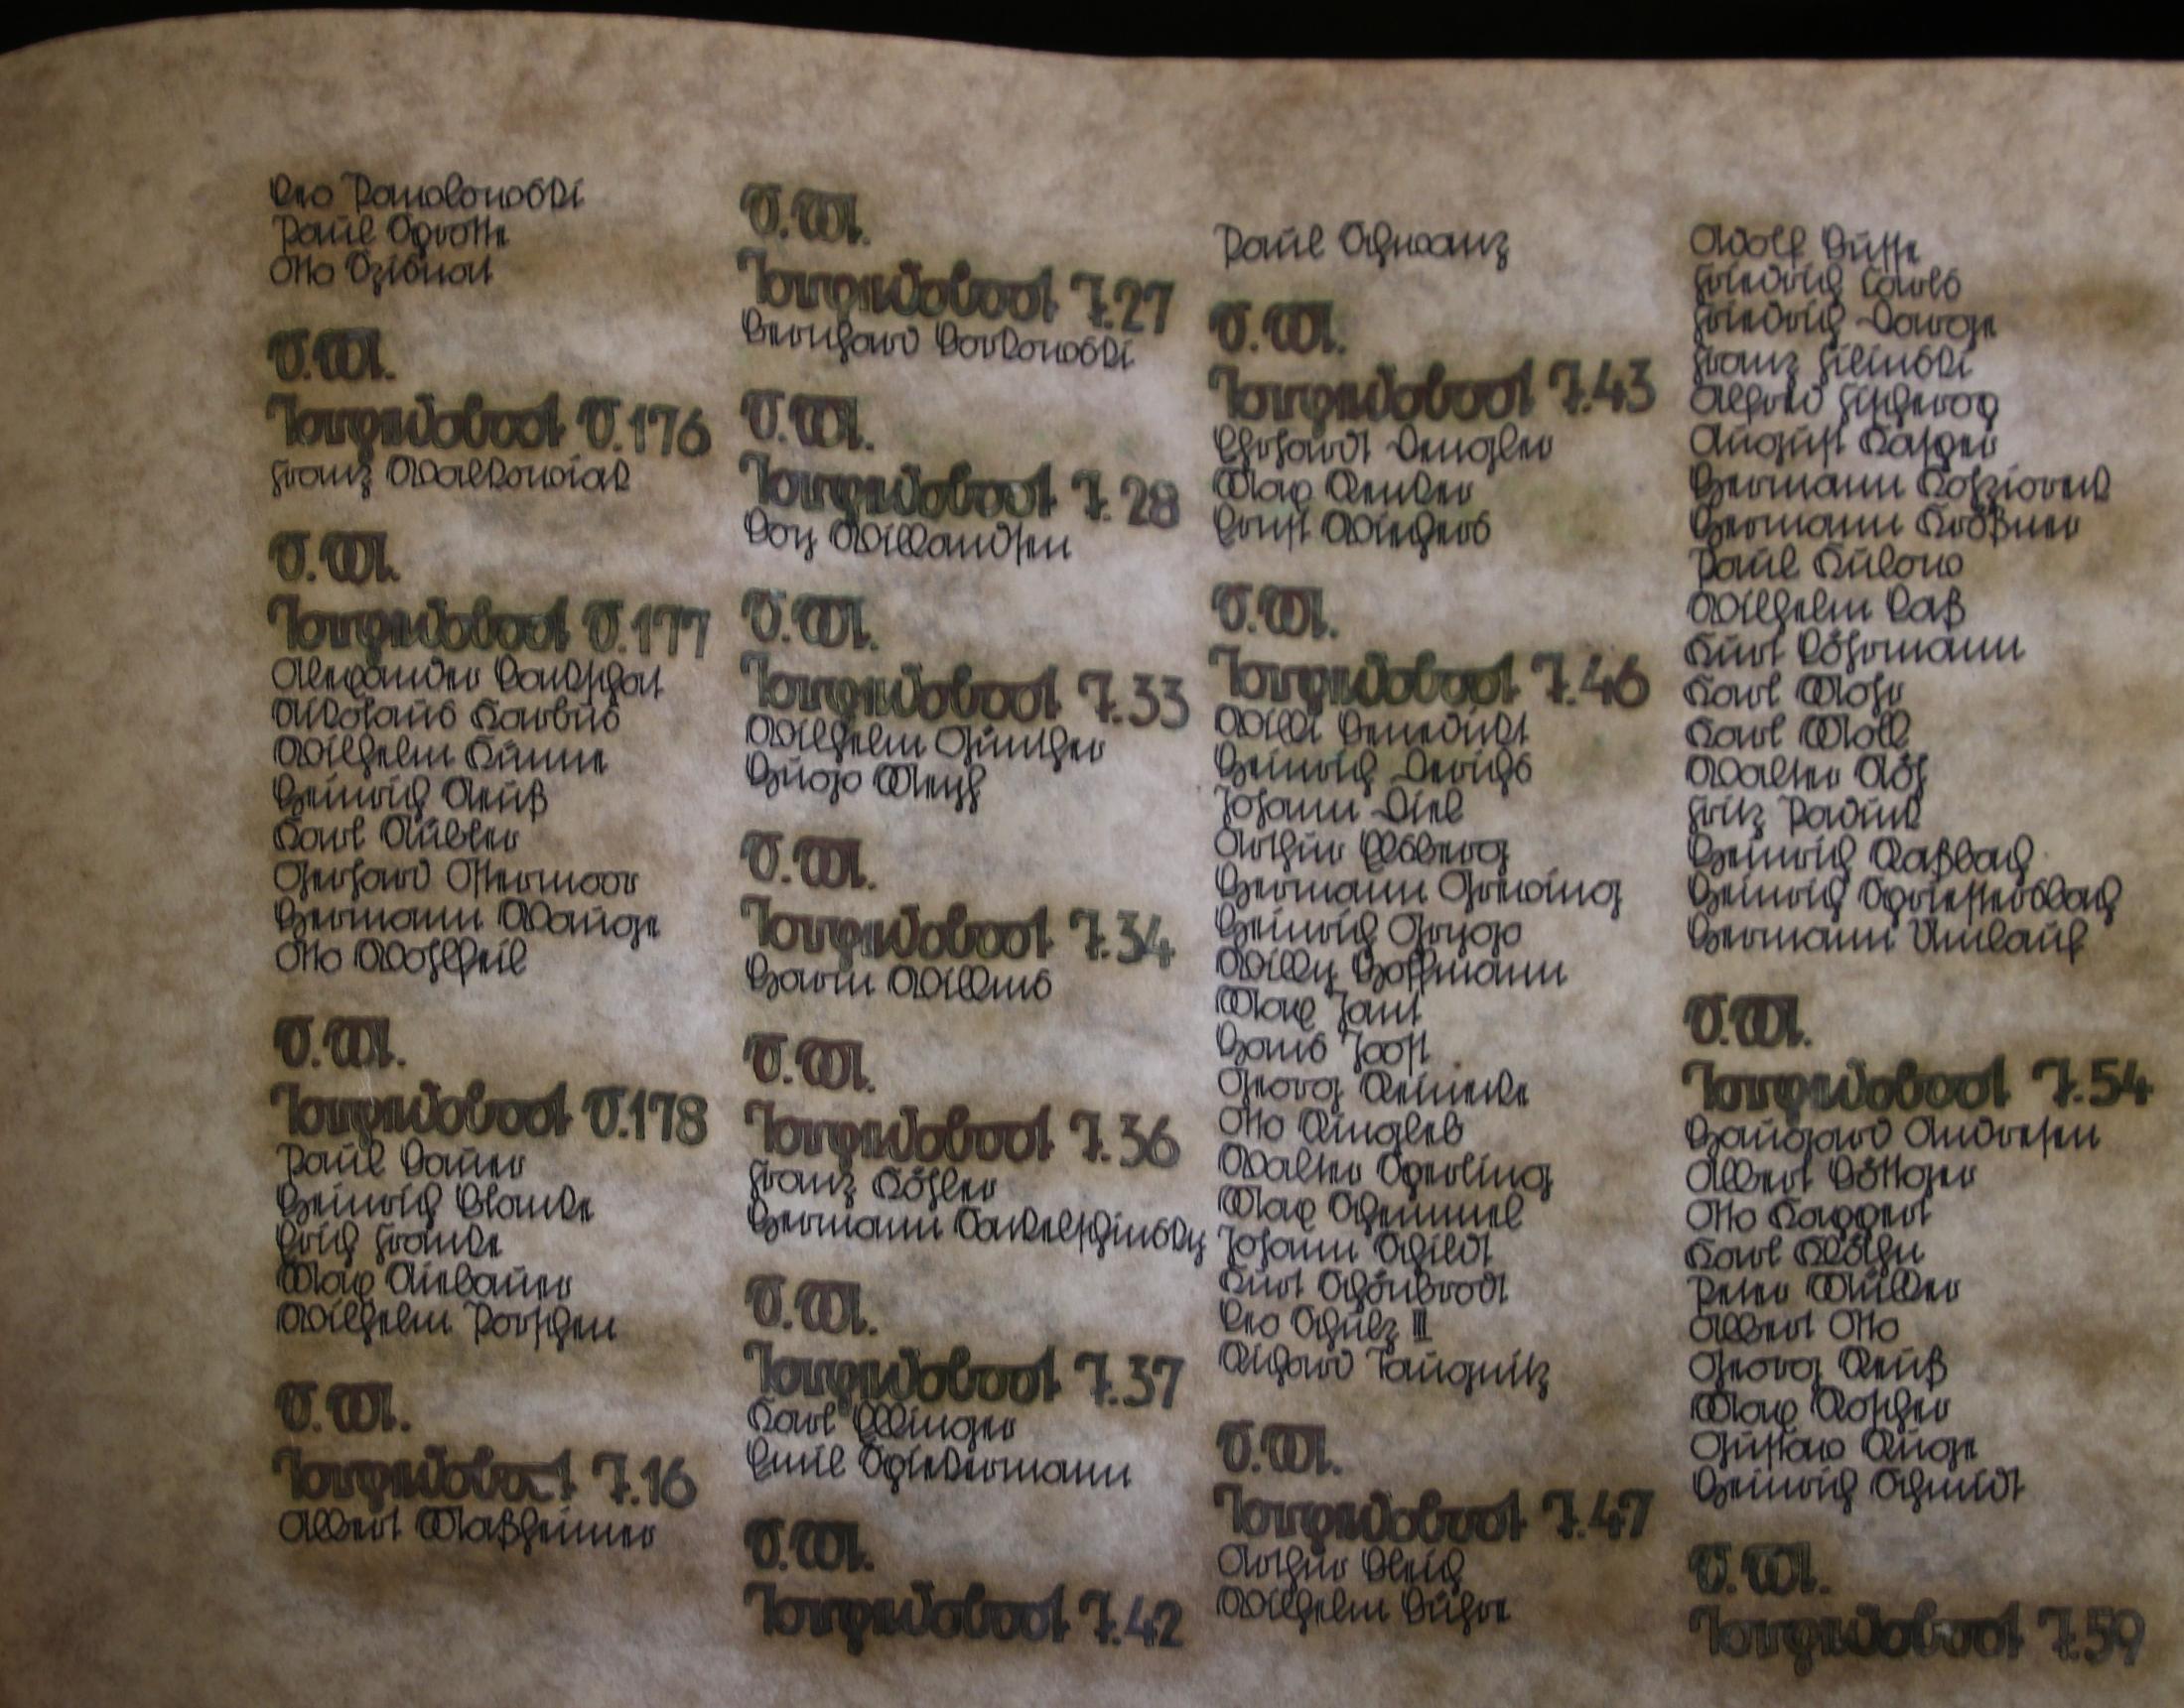 Leo Pawolowski
Paul Sprotte
Otto Szibnat
S.M.
Torpedoboot V.176
Franz Walkowiak
S.M.
Torpedoboot V.177
Alexander Backschat
Nikolaus Karbus
Wilhelm Kunne
Heinrich Neuß
Karl Nübler
Gerhard Ostermoor
Hermann Wange
Otto Wohlfeil
S.M.
Torpedoboot V.178
Paul Bauer
Heinrich Blanke
Erich Franke
Max Niebauer
Wilhelm Porschen
S.M.
Torpedoboot T.16
Albert Maßheimer
S.M.
Torpedoboot T.27
Bernhard Borkowski
S.M.
Torpedoboot T.28
Boy Willandsen
S.M.
Torpedoboot T.33
Wilhelm Günther
Hugo Meyh
S.M.
Torpedoboot T.34
Harm Willms
S.M.
Torpedoboot T.36
Franz Köhler
Hermann Kakelschinsky
S.M.
Torpedoboot T.37
Karl Ellinger
Emil Spiekermann
S.M.
Torpedoboot T.42
Paul Schwanz
S.M.
Torpedoboot T.43
Ehrhardt Dengler
Max Renker
Ernst Wiechers
S.M.
Torpedoboot T.46
Willi Benedickt
Heinrich Derichs
Johann Diel
Arthur Elsberg
Hermann Greving
Heinrich Grygo
Willy Hoffmann
Max Jant
Hans Joost
Georg Reinecke
Otto Ringleb
Walter Sperling
Max Schemmel
Johann Schildt
Kurt Schönbrodt
Leo Schulz III
Richard Taugnitz
S.M.
Torpedoboot T.47
Arthur Bleich
Wilhelm Bühre
Adolf Busse
Friedrich Carls
Friedrich Darge
Franz Filinski
Alfred Fischerog
August Kasper
Hermann Kosziorek
Hermann Kroßner
Paul Kulow
Wilhelm Laß
Kurt Löhrmann
Karl Mohr
Karl Moll
Walter Nöh
Fritz Radink
Heinrich Raßbach
Heinrich Spriestersbach
Hermann Umlauf
S.M.
Torpedoboot T.54
Haugard Andresen
Albert Böttger
Otto Kappert
Karl Köthn
Peter Müller
Albert Otto
Georg Reuß
Max Roscher
Gustav Ruge
Heinrich Schmidt
S.M.
Torpedoboot T.59